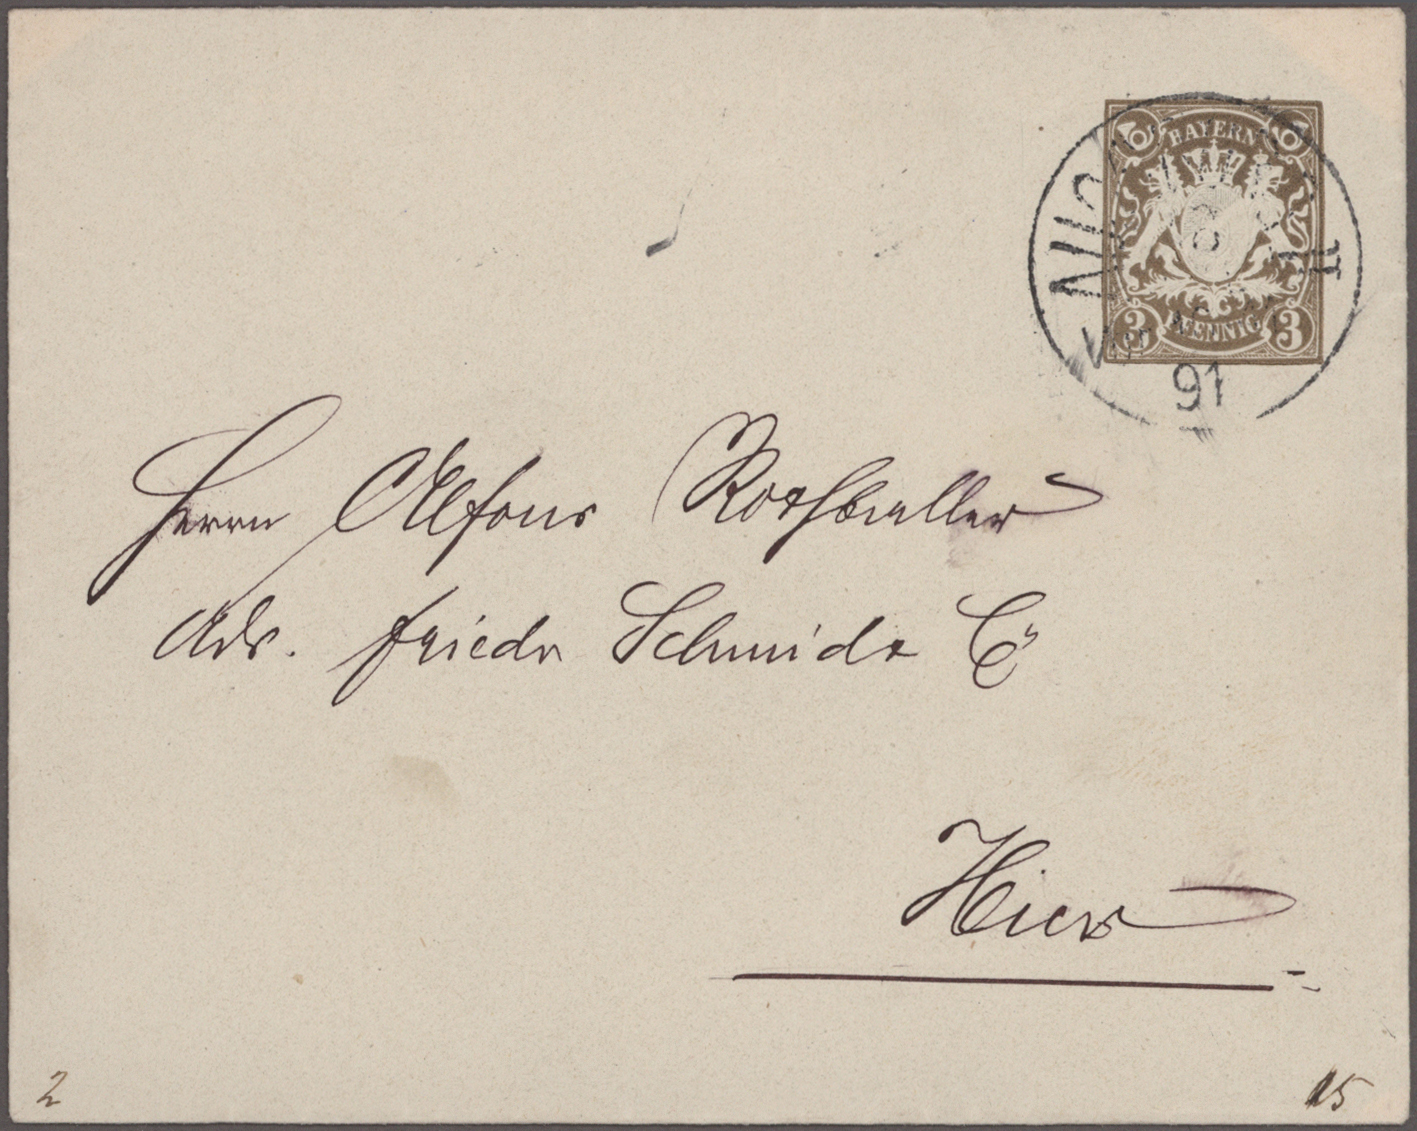 BAYERN
3 PFENNIG 3
II
91
Herrn Alfons Rothballer
Adr. Friedr Schmidt Co
Hier
2
15